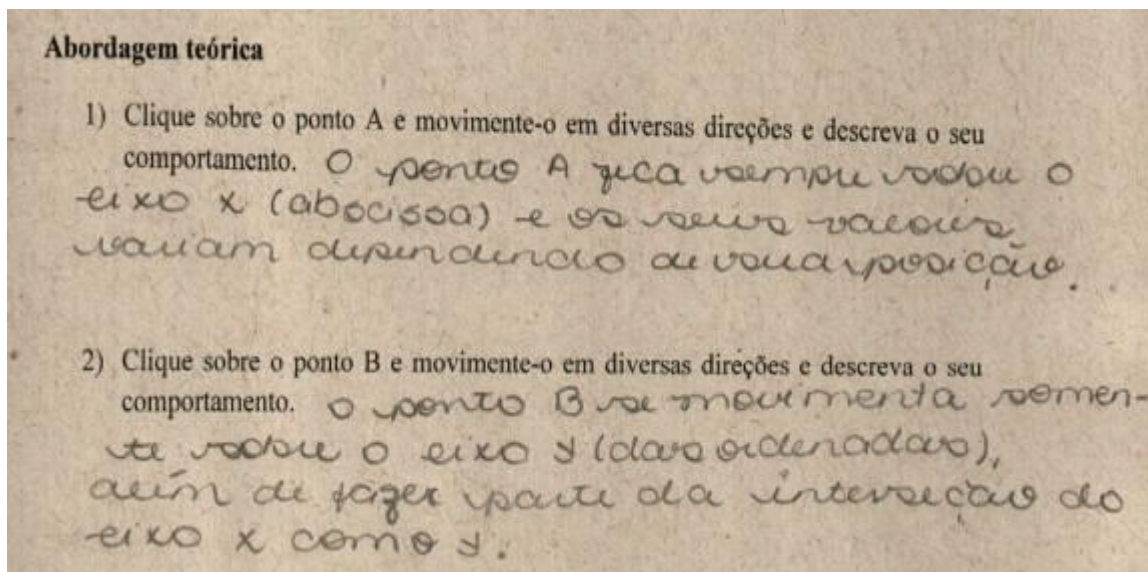 Abordagem teórica
1) Clique sobre o ponto A e movimente-o em diversas direções e descreva o seu
comportamento. O ponto A fica sempre sobre o
eixo x (abscissa) e os seus valores
variam dependendo de sua posição.
2) Clique sobre o ponto B e movimente-o em diversas direções e descreva o seu
comportamento. O ponto B se movimenta somen-
te sobre o eixo y (das ordenadas),
além de fazer parte da interseção do
eixo x com o y.